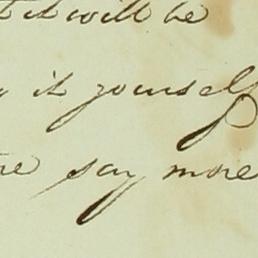 it will be
it yourself
say more